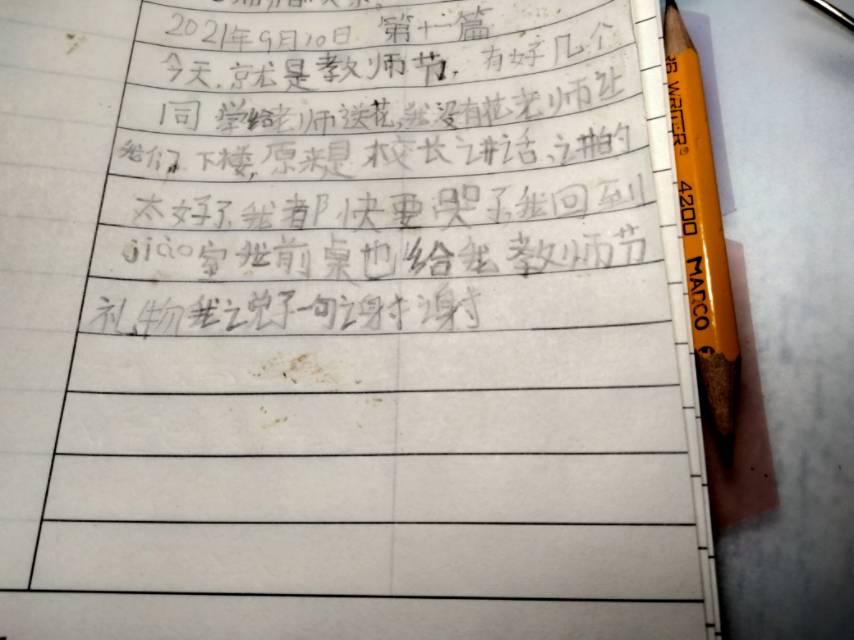 2021年9月10日 第十一篇
今天,就是教师节,有好几个
同学给老师送花,我没有花老师让
我们下楼,原来是校长讲话、讲的
太好了我都快要哭了我回到
jiao室我前桌也给我教师节
礼物我说了一句谢谢
WRITER® 4200 MARCO